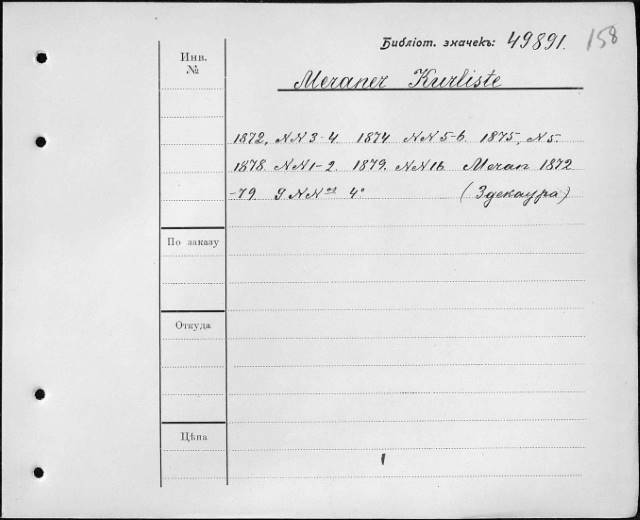 Библіот. значекъ: 49891. 158
Инв.
№
Meraner Kurliste
1872, NN 3-4. 1874 NN 5-6. 1875, N 5.
1878 NN 1-2. 1879. NN 16 Meran 1872
-79 9 NN os 4°
(Здекаура)
По заказу
Откуда
Цѣна
1